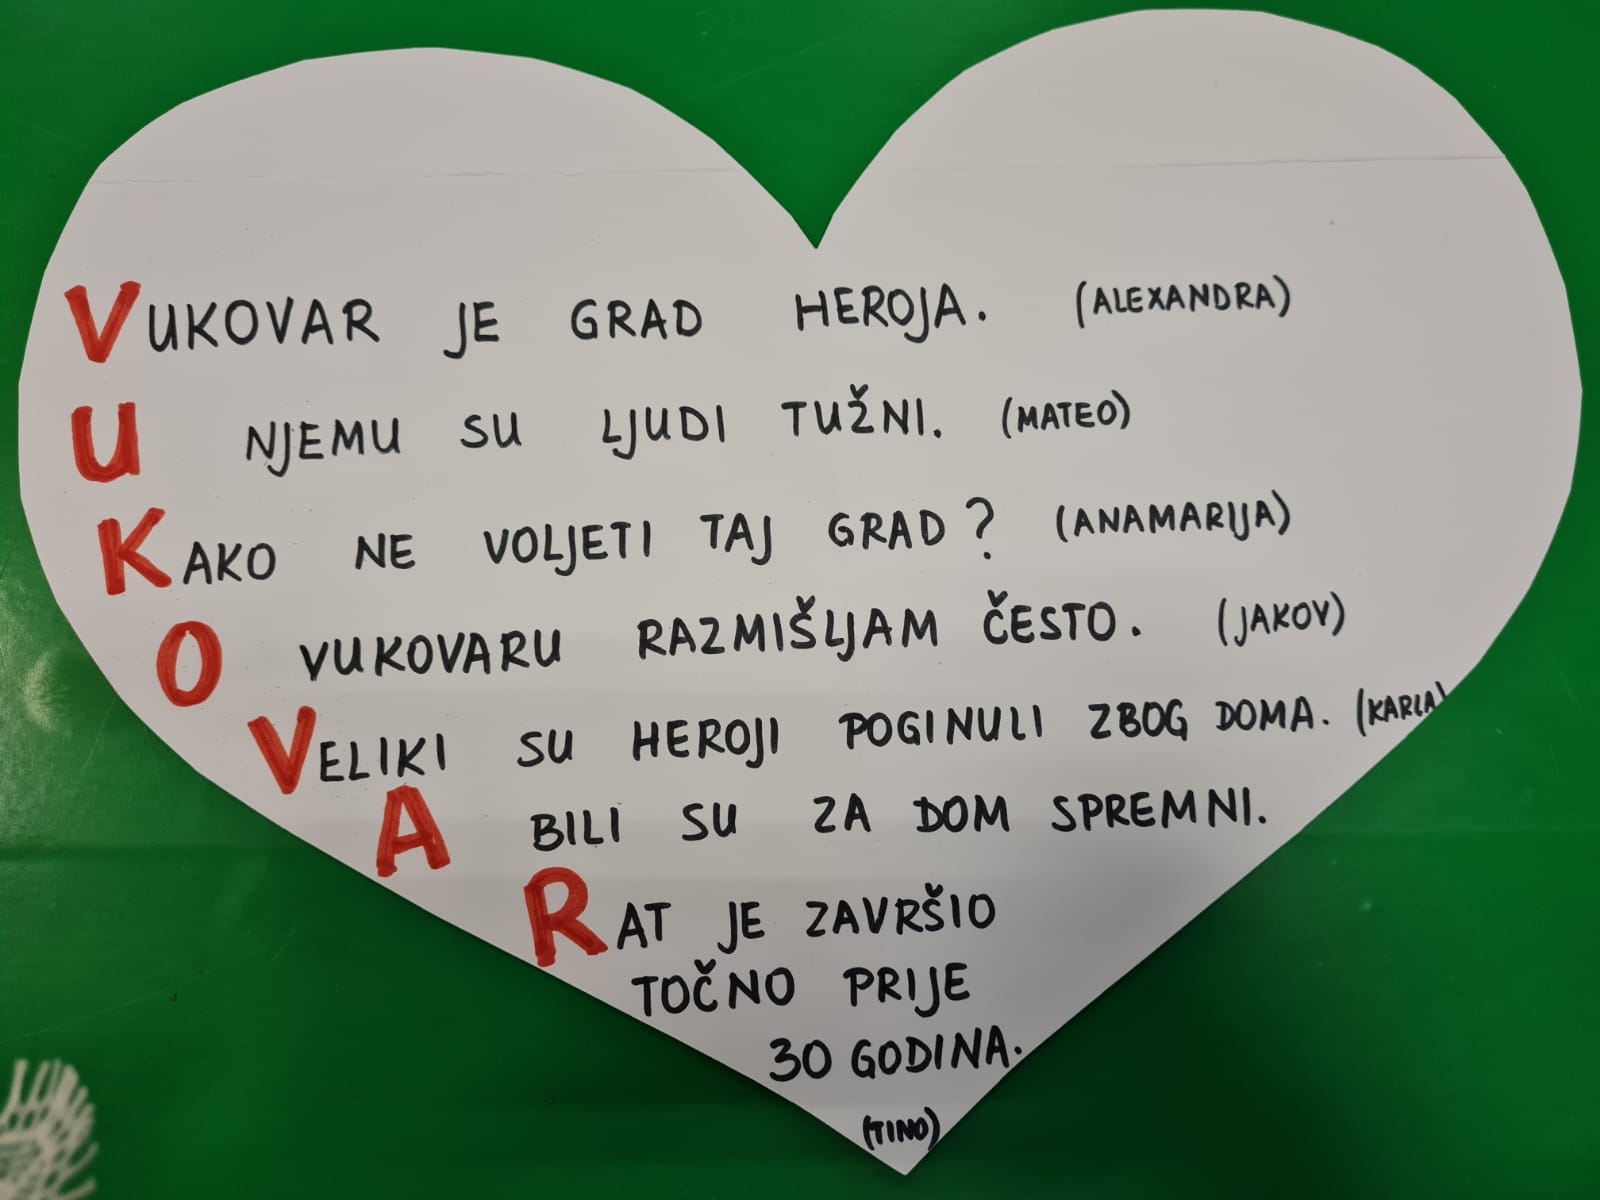 VUKOVAR JE GRAD HEROJA. (ALEXANDRA)
U NJEMU SU LJUDI TUŽNI. (MATEO)
KAKO NE VOLJETI TAJ GRAD? (ANAMARIJA)
O VUKOVARU RAZMIŠLJAM ČESTO. (JAKOV)
VELIKI SU HEROJI POGINULI ZBOG DOMA. (KARLA)
A BILI SU ZA DOM SPREMNI.
RAT JE ZAVRŠIO
TOČNO PRIJE
30 GODINA.
(TINO)